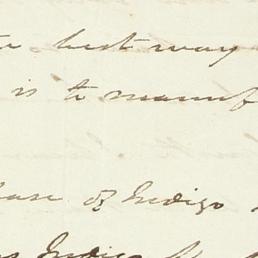 best way
is to manuf
of Indigo
Indigo